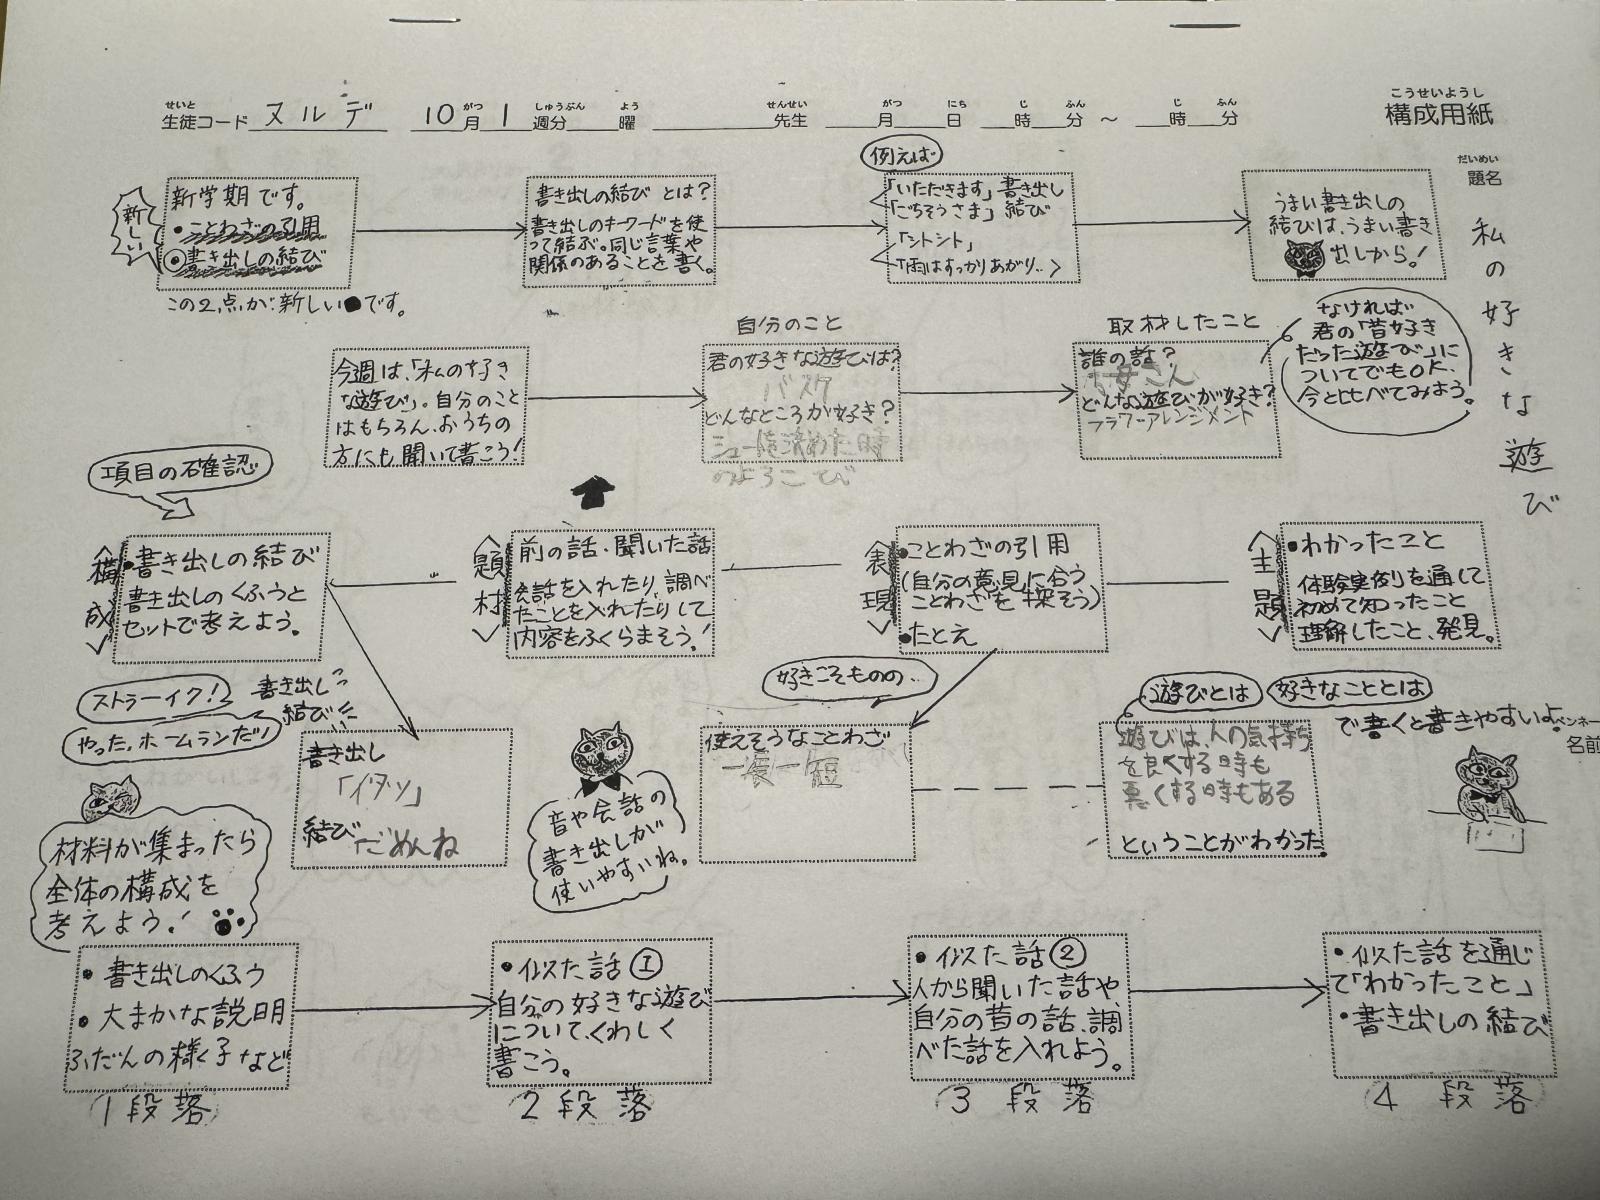 せいと がつ しゅうぶん よう せんせい がつ にち じ ふん じ ふん
生徒コード ヌルデ 10月1週分 曜 先生 月 日 時 分 ～ 時 分
こうせいようし
構成用紙
だいめい
題名
私の好きな遊び
新しい
新学期です。
・ことわざの引用
⦿書き出しの結び
この2点が新しい●です。
書き出しの結び とは?
書き出しのキーワードを使
って結ぶ。同じ言葉や
関係のあることを書く。
例えば
「いただきます」書き出し
「ごちそうさま」結び
「シトシト」
「雨はすっかりあがり‥
うまい書き出しの
結びは、うまい書き
出しから!
今週は、「私の好き
な遊び」。自分のこと
はもちろん、おうちの
方にも聞いて書こう!
自分のこと
君の好きな遊びは?
バスケ
どんなところが好き?
のよろこび
取材したこと
誰の話?
お母さん
どんな遊びが好き?
フラワーアレンジメント
なければ
君の「昔好き
だった遊び」に
ついてでもOK、
今と比べてみよう。
項目の確認
〈構成〉
・書き出しの結び
書き出しのくふうと
セットで考えよう。
〈題材〉
前の話・聞いた話
会話を入れたり、調べ
たことを入れたりして
内容をふくらまそう!
〈表現〉
・ことわざの引用
(自分の意見に合う
ことわざを探そう)
・たとえ
〈主題〉
・わかったこと
体験実例を通して
初めて知ったこと
理解したこと、発見。
ストラーイク!
やった、ホームランだ!
書き出し
結び
書き出し
「イタッ」
結び
ごめんね
音や会話の
書き出しが
使いやすいね。
好きこそものの‥
使えそうなことわざ
一長一短
遊びとは
好きなこととは
で書くと書きやすいよ。
遊びは、人の気持ち
を良くする時も
悪くする時もある
ということがわかった。
ペンネー
名前
材料が集まったら
全体の構成を
考えよう!
・書き出しのくふう
・大まかな説明
ふだんの様子など
1段落
・似た話①
自分の好きな遊び
について、くわしく
書こう。
2段落
・似た話②
人から聞いた話や、
自分の昔の話、調
べた話を入れよう。
3段落
・似た話を通じ
て「わかったこと」
・書き出しの結び
4段落